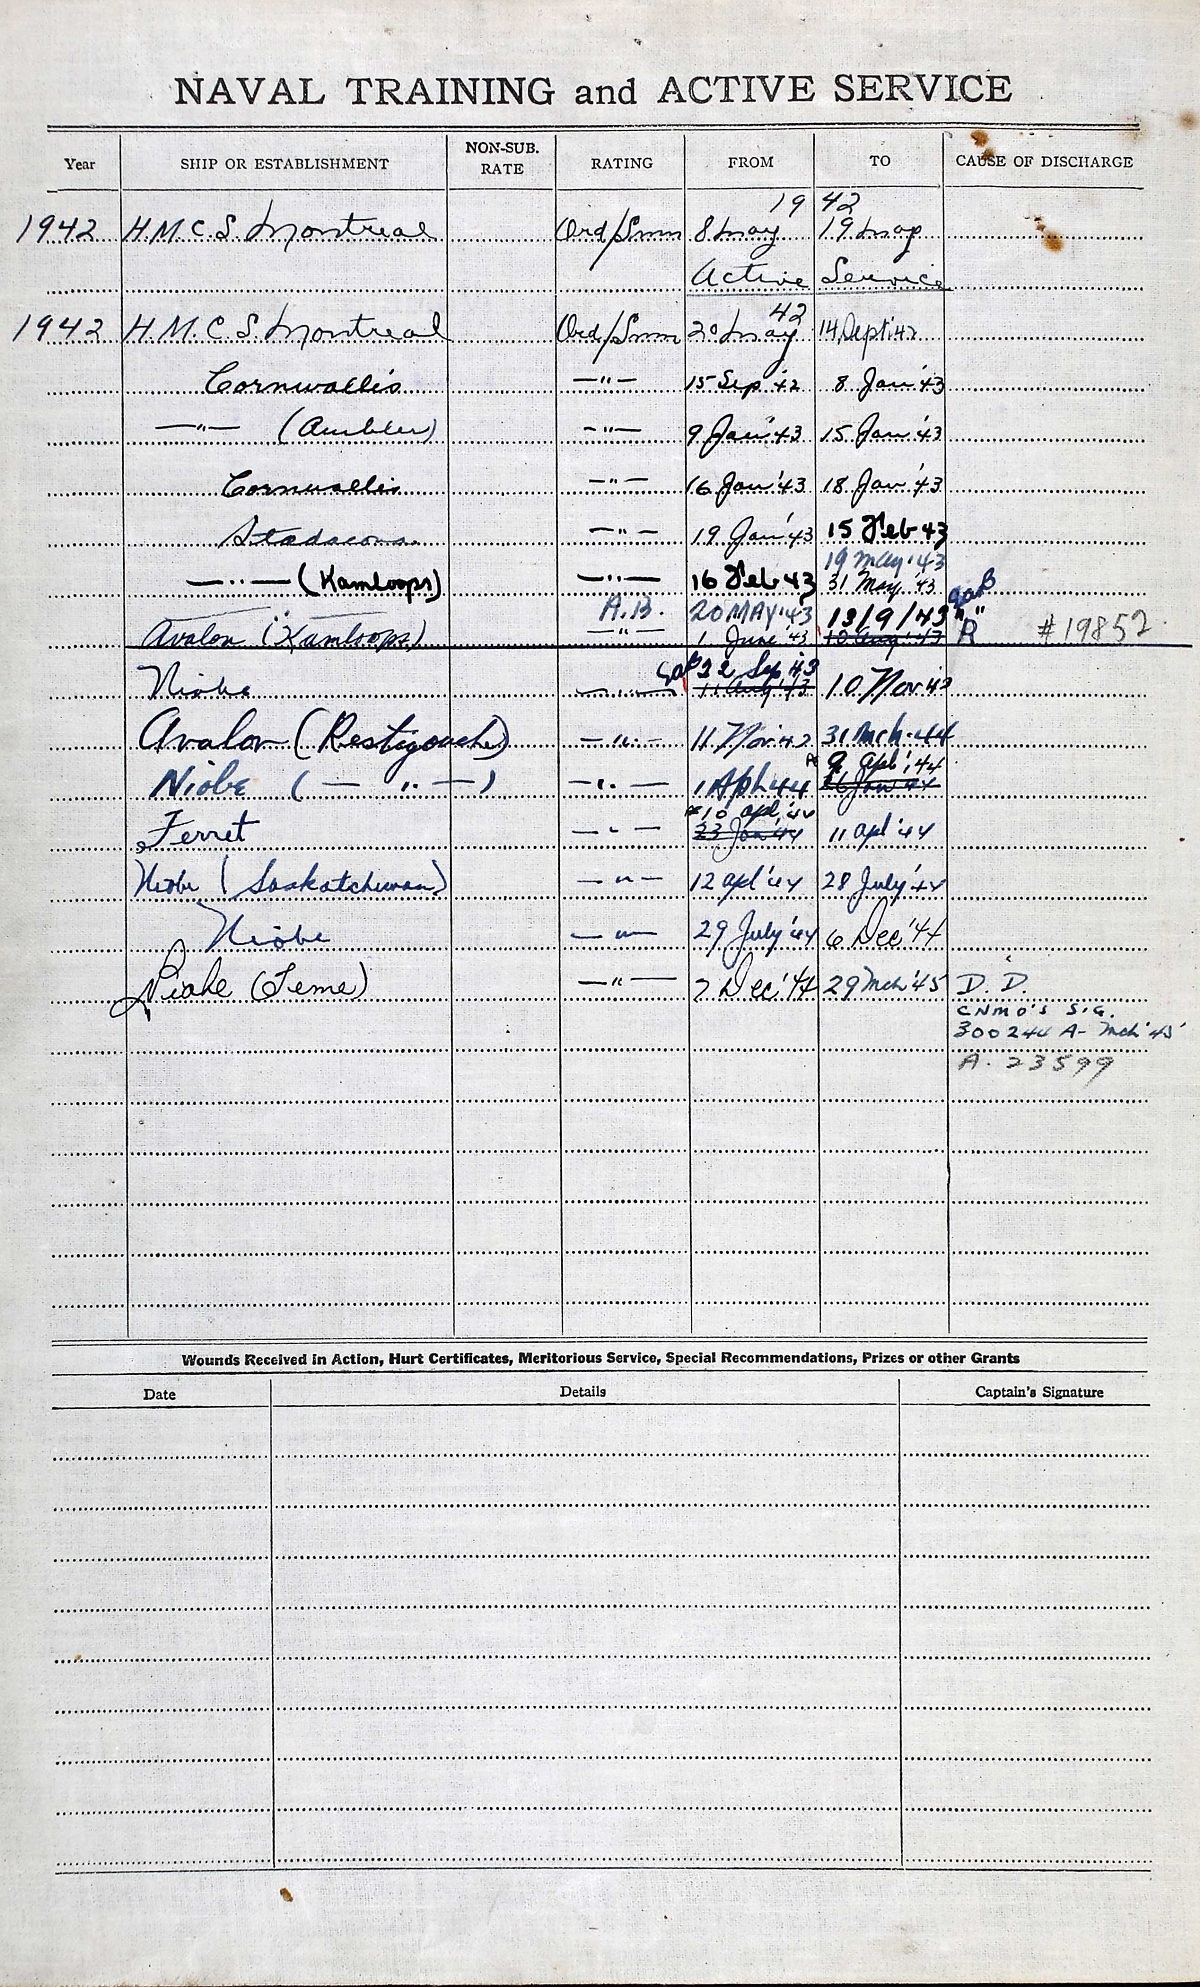 NAVAL TRAINING and ACTIVE SERVICE
Year SHIP OR ESTABLISHMENT NON-SUB. RATE RATING FROM TO CAUSE OF DISCHARGE
19 42
1942 H.M.C.S. Montreal Ord/Smn 8 May 19 May
Active Service
42
1942 H.M.C.S. Montreal Ord/Smn 20 May 14 Sept '42
Cornwallis —"— 15 Sep '42 8 Jan '43
—"— (Ambler) —"— 9 Jan '43 15 Jan '43
Cornwallis —"— 16 Jan '43 18 Jan '43
Stadacona —"— 19 Jan '43 15 Feb 43
19 May '43
—"— (Kamloops) —"— 16 Feb 43 31 May '43
A.B. 20 MAY '43 13/9/43 "
Avalon (Kamloops) —"— 1 June '43 10 Aug '43 R #19852
22 Sep 43
Niobe —"— 11 Aug '43 10 Nov 43
Avalon (Restigouche) —"— 11 Nov 43 31 Mch 44
9 Apl '44
Niobe (— " —) —"— 1 Aph 44
10 apl '44
Ferret —"— 23 Jan '44 11 apl '44
Niobe (Saskatchewan) —"— 12 apl '44 28 July '44
Niobe —"— 29 July '44 6 Dec '44
Niobe (Teme) —"— 7 Dec '44 29 Mch '45 D. D.
CNMO'S SIG.
300244 A- Mch '45
A. 23599
Wounds Received in Action, Hurt Certificates, Meritorious Service, Special Recommendations, Prizes or other Grants
Date Details Captain's Signature